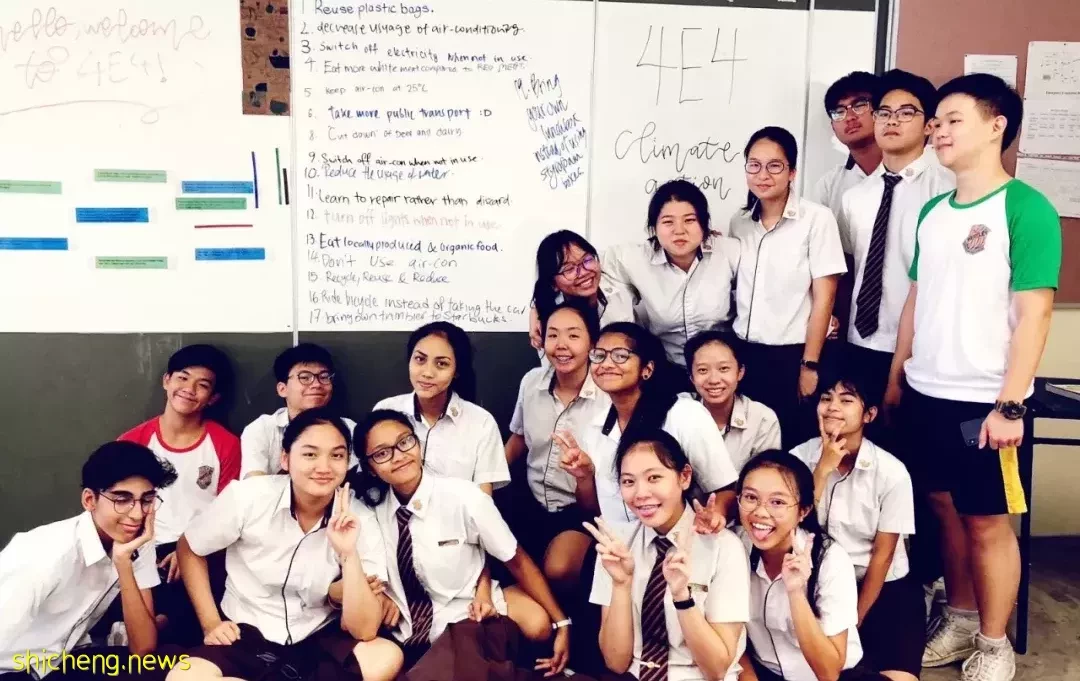 Hello, welcome
to 4E4!
1. Reuse plastic bags.
2. decrease usage of air-conditioning.
3. Switch off electricity when not in use.
4. Eat more white meat compared to RED MEAT.
5 keep air-con at 25°C
6. Take more public transport :D
8. Cut down of beef and dairy
9. Switch off air-con when not in use.
10. Reduce the usage of water.
11. Learn to repair rather than discard.
12. Turn off lights when not in use.
13 Eat locally produced & organic food.
14. Don't use air-con
15. Recycle, Reuse & Reduce
16 Ride bicycle instead of taking the car
17. bring own tumbler to Starbucks.
7. Bring
your own
lunchbox
instead of using
styrofoam
boxes
4E4
climate
action
shicheng.news